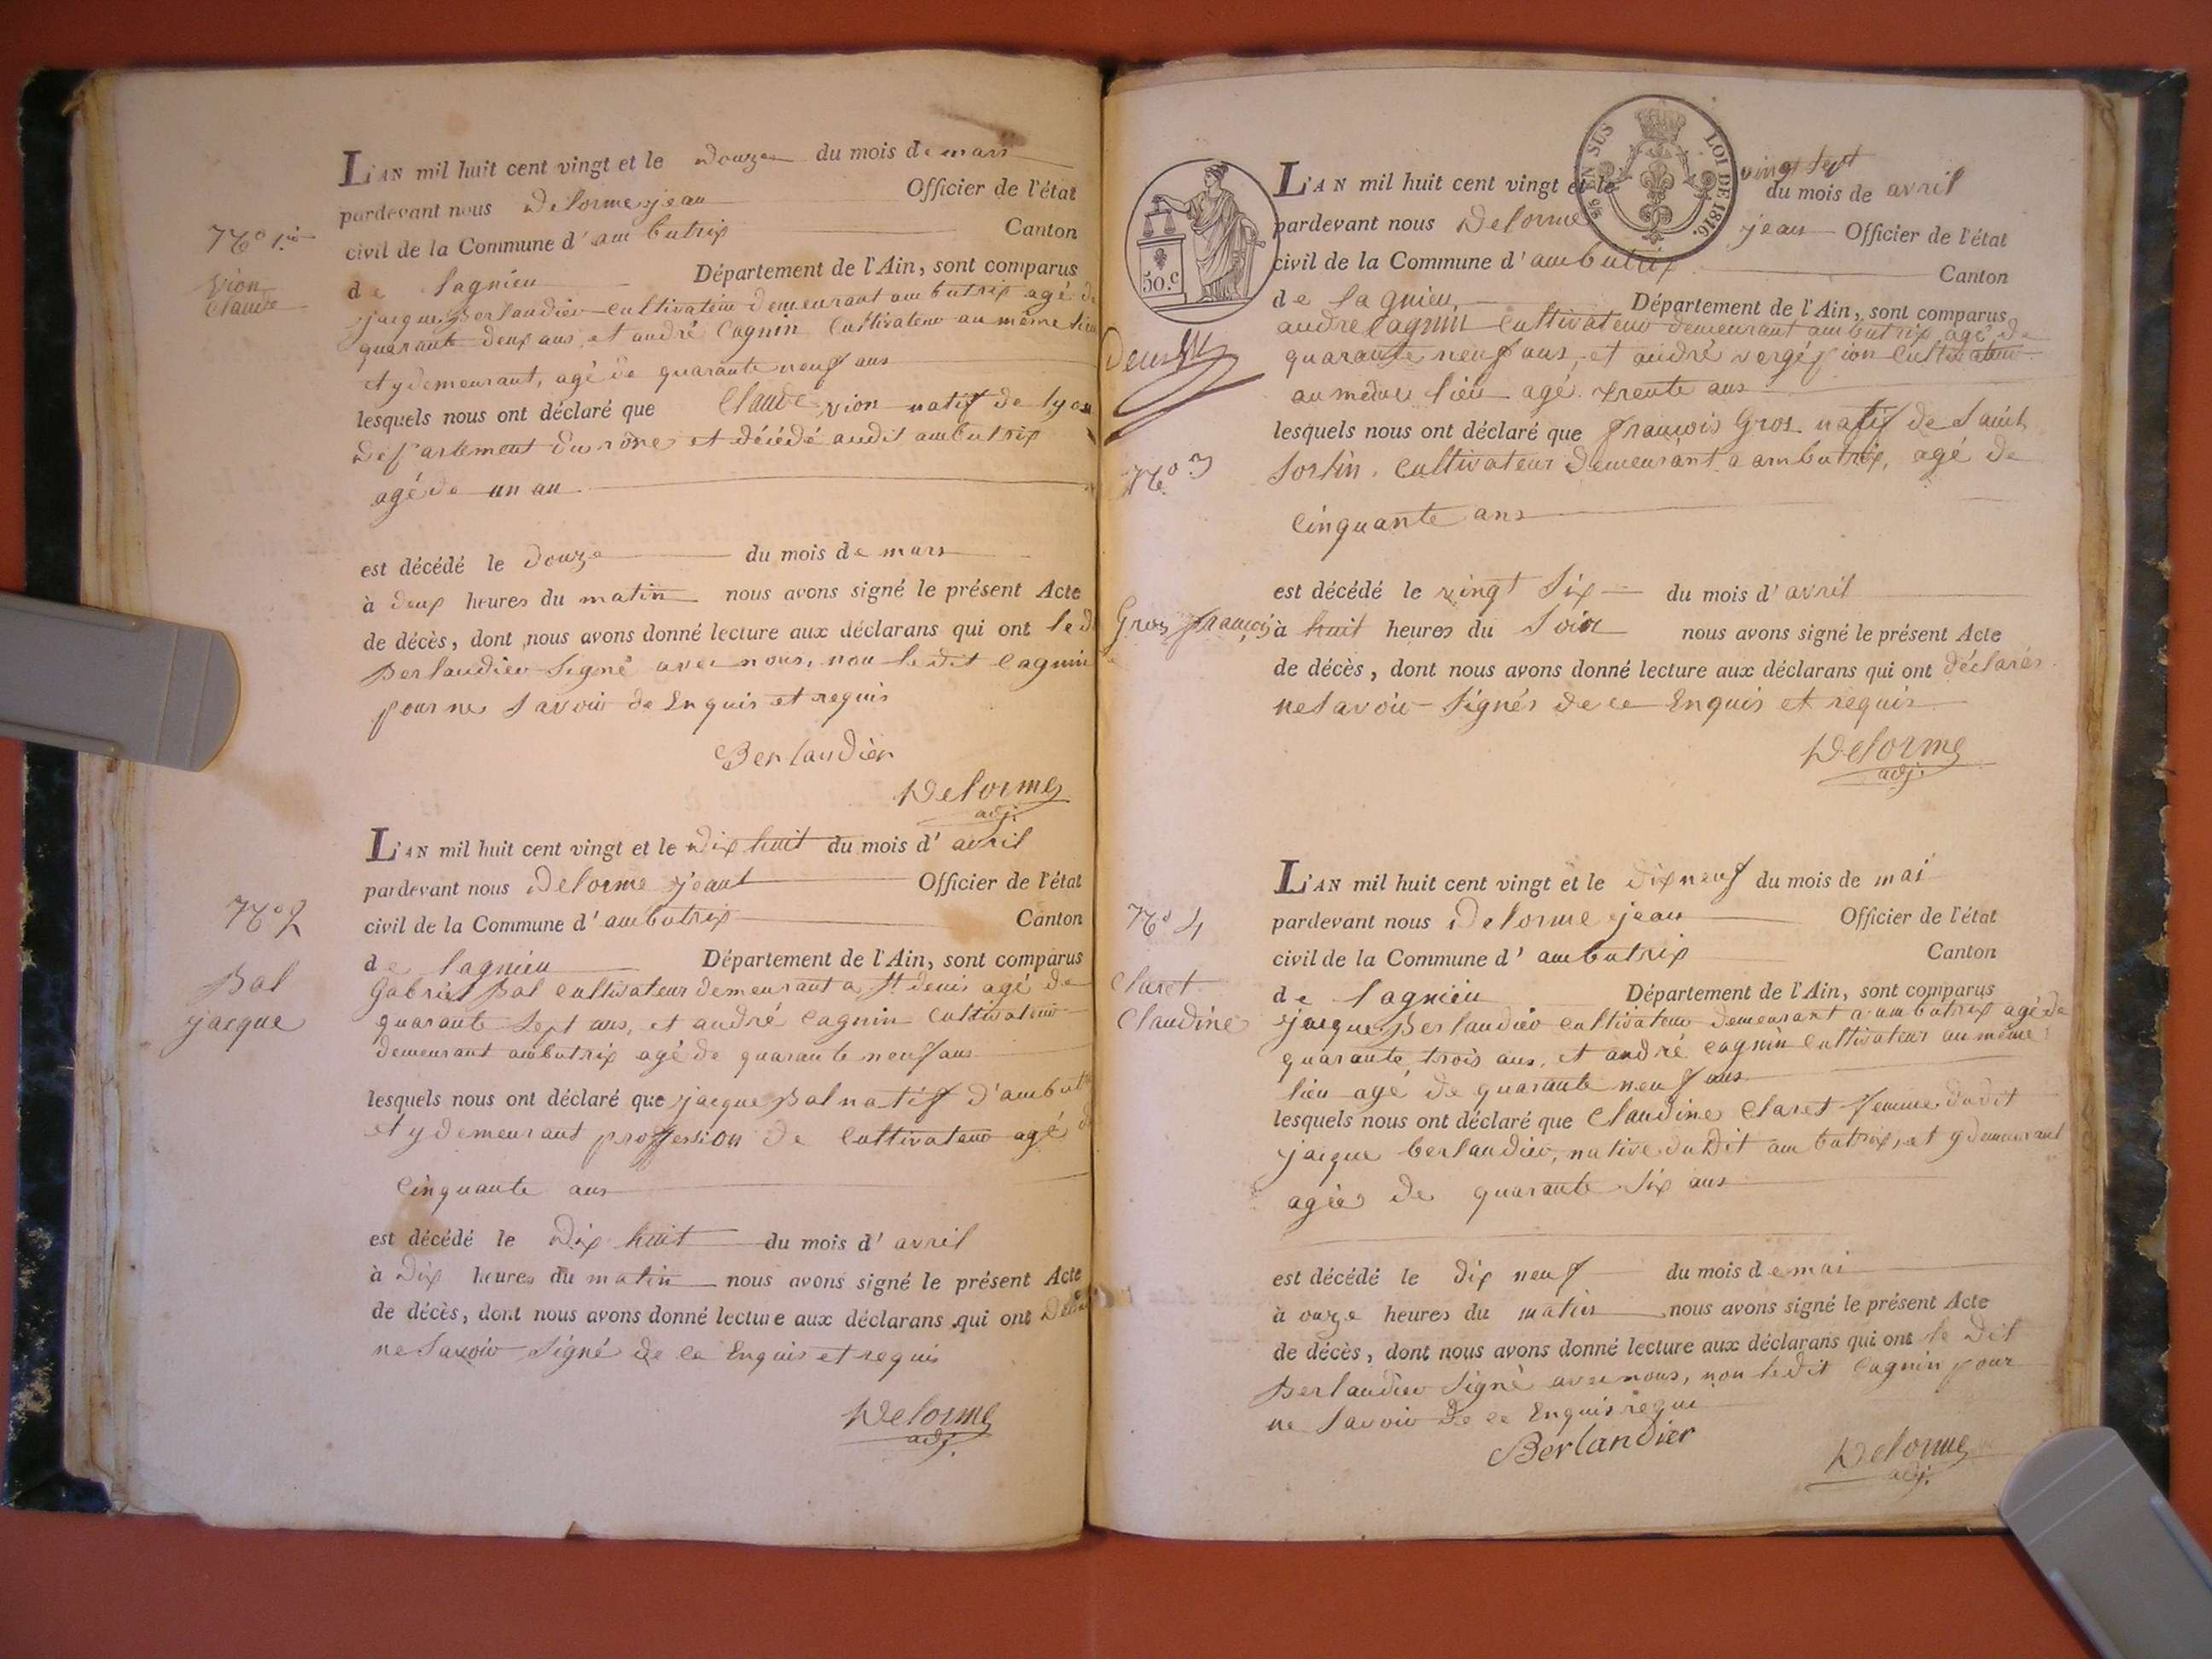 L'AN mil huit cent vingt et le Douze du mois de mars
pardevant nous Delorme jean Officier de l'état
civil de la Commune d'ambutrix Canton
de lagnieu Département de l'Ain, sont comparus
jacque Berlaudier cultivateur demeurant ambutrix agé de
quarante deux ans, et andré Cagnin Cultivateur au même lieu
et y demeurant, agé de quarante neuf ans
lesquels nous ont déclaré que Claude vion natif de lyon
Departement du rône et décédé audit ambutrix
agé de un an
est décédé le douze du mois de mars
à deux heures du matin nous avons signé le présent Acte
de décès, dont nous avons donné lecture aux déclarans qui ont led
Berlaudier Signé avec nous, non le dit Cagnin
pour ne Savoir de Enquis et requis
Berlaudier
Delorme
adj.
N.º 1.er
Vion
Claude
L'AN mil huit cent vingt et le Dix huit du mois d'avril
pardevant nous Delorme jean Officier de l'état
civil de la Commune d'ambutrix Canton
de lagnieu Département de l'Ain, sont comparus
Gabriel Bal cultivateur demeurant a St denis agé de
quarante Sept ans, et andré Cagnin Cultivateur
demeurant ambutrix agé de quarante neuf ans
lesquels nous ont déclaré que jacque Bal natif d'ambut
et y demeurant proffession de Cultivateur agé de
Cinquante ans
est décédé le Dix huit du mois d'avril
à Dix heures du matin nous avons signé le présent Acte
de décès, dont nous avons donné lecture aux déclarans qui ont
ne Savoir Signé de ce Enquis et requis
Delorme
adj.
Nº 2
Bal
jacque
50.C
EN SUS LOI DE 1816.
L'AN mil huit cent vingt et le vingt Sept du mois de avril
pardevant nous Delorme jean Officier de l'état
civil de la Commune d'ambutrix Canton
de lagnieu, Département de l'Ain, sont comparus
andre Cagnin Cultivateur demeurant ambutrix agé de
quarante neuf ans, et andré vergé Cultivateur
au même lieu agé trente ans
lesquels nous ont déclaré que françois Gros natif de Saint
Sorlin, Cultivateur demeurant a ambutrix, agé de
Cinquante ans
est décédé le vingt Six du mois d'avril
à huit heures du Soir nous avons signé le présent Acte
de décès, dont nous avons donné lecture aux déclarans qui ont déclarés
ne Savoir Signés de ce Enquis et requis
Delorme
adj.
Nº 3
Gros françois
L'AN mil huit cent vingt et le dix neuf du mois de mai
pardevant nous Delorme jean Officier de l'état
civil de la Commune d'ambutrix Canton
de lagnieu Département de l'Ain, sont comparus
jacque Berlaudier cultivateur demeurant a ambutrix agé de
quarante trois ans, et andré Cagnin Cultivateur au même
lieu agé de quarante neuf ans
lesquels nous ont déclaré que Claudine Claret femme dudit
jacque berlaudier, native dudit ambutrix, et y demeurant
agée de quarante Six ans
est décédé le dix neuf du mois de mai
à onze heures du matin nous avons signé le présent Acte
de décès, dont nous avons donné lecture aux déclarans qui ont le dit
Berlaudier Signé avec nous, non ledit Cagnin pour
ne Savoir de ce Enquis requi
Berlandier
Delorme
adj.
Nº 4
Claret
Claudine